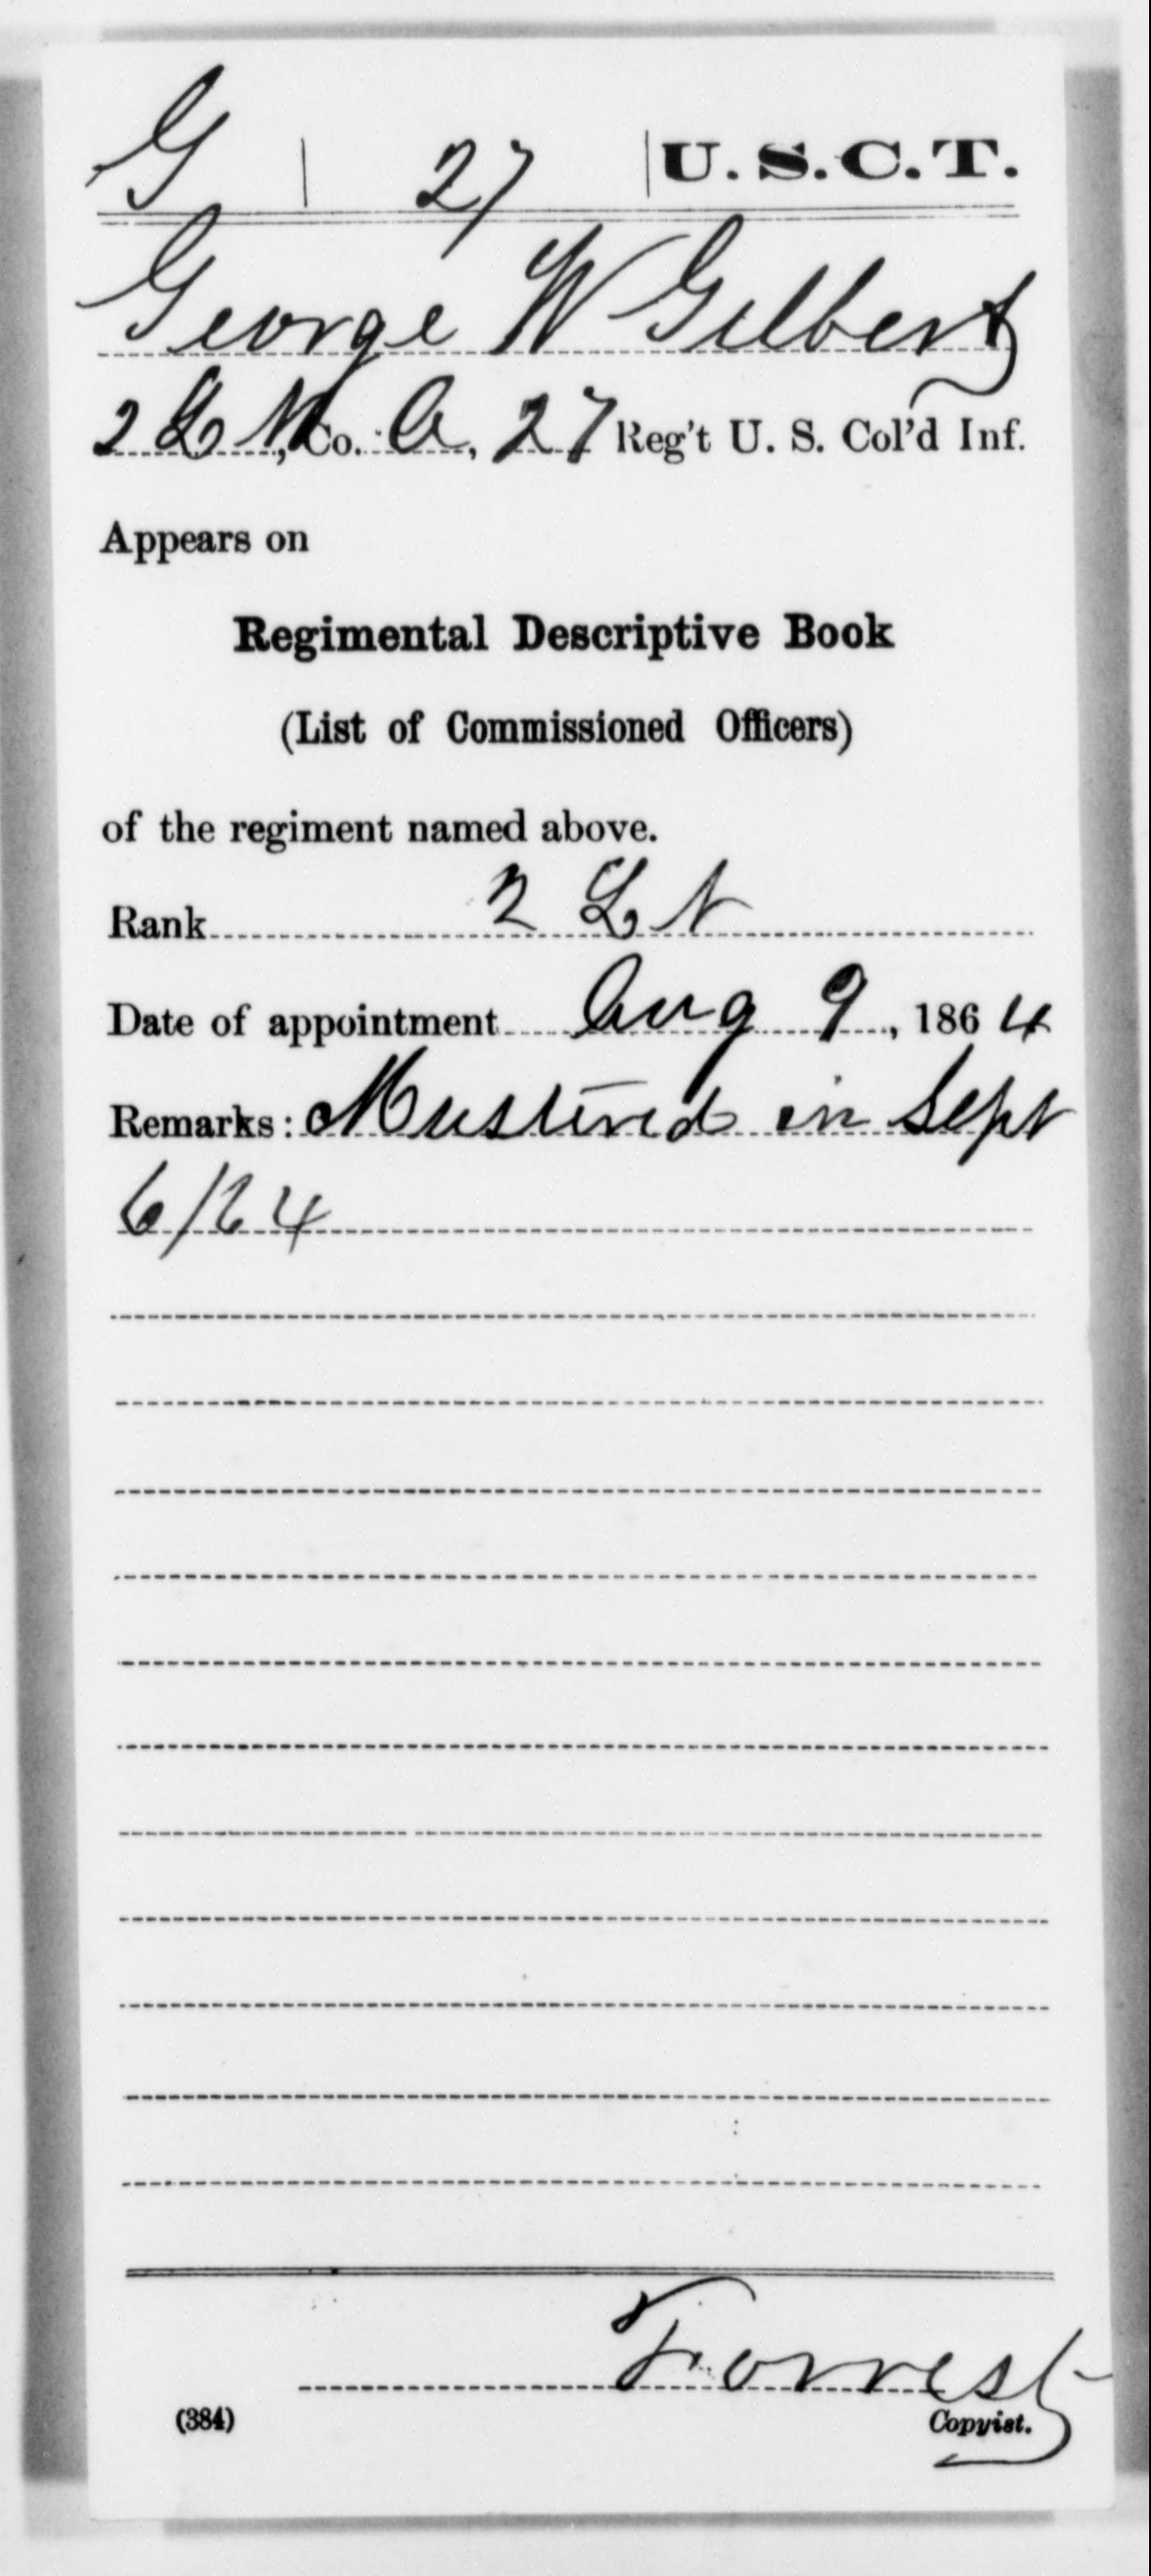 G | 27 | U.S.C.T.
George W Gilbert
2 Lt, Co. A, 27 Reg't U. S. Col'd Inf.
Appears on
Regimental Descriptive Book
(List of Commissioned Officers)
of the regiment named above.
Rank 2 Lt
Date of appointment Aug 9, 1864
Remarks: Mustered in Sept
6/64
Forrest
(384) Copyist.